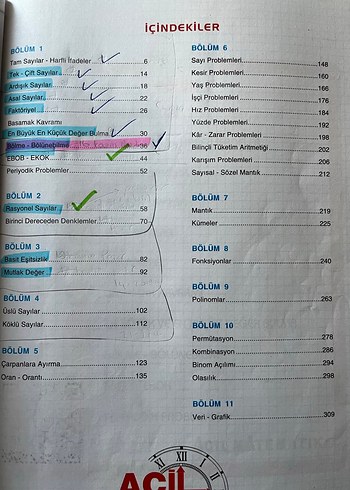 İÇİNDEKİLER
BÖLÜM 1
Tam Sayılar - Harfli İfadeler 6
Tek - Çift Sayılar 14
Ardışık Sayılar 18
Asal Sayılar 22
Faktöriyel 26
Basamak Kavramı
En Büyük En Küçük Değer Bulma 30
Bölme - Bölünebilme 36
EBOB - EKOK 44
Periyodik Problemler 52
BÖLÜM 2
Rasyonel Sayılar 58
Birinci Dereceden Denklemler 70
BÖLÜM 3
Basit Eşitsizlik 82
Mutlak Değer 92
BÖLÜM 4
Üslü Sayılar 102
Köklü Sayılar 112
BÖLÜM 5
Çarpanlara Ayırma 123
Oran - Orantı 135
BÖLÜM 6
Sayı Problemleri 148
Kesir Problemleri 160
Yaş Problemleri 166
İşçi Problemleri 176
Hız Problemleri 184
Yüzde Problemleri 192
Kâr - Zarar Problemleri 198
Bilinçli Tüketim Aritmetiği 202
Karışım Problemleri 206
Sayısal - Sözel Mantık 212
BÖLÜM 7
Mantık 219
Kümeler 225
BÖLÜM 8
Fonksiyonlar 240
BÖLÜM 9
Polinomlar 263
BÖLÜM 10
Permütasyon 278
Kombinasyon 286
Binom Açılımı 294
Olasılık 298
BÖLÜM 11
Veri - Grafik 309
XI XII I II
ACİL